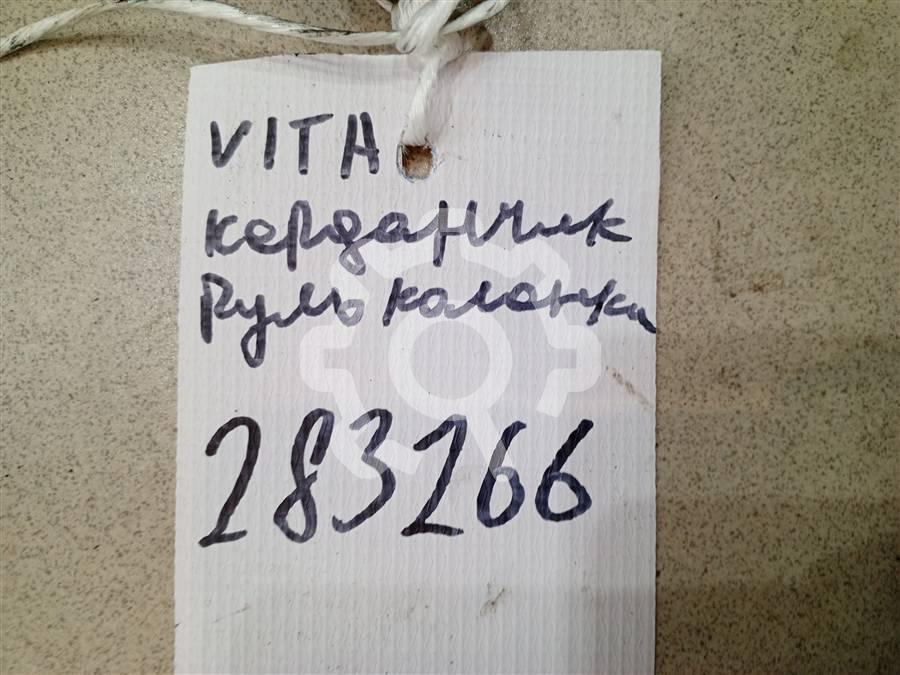 VITA
карданчик
Руль колонки
283266